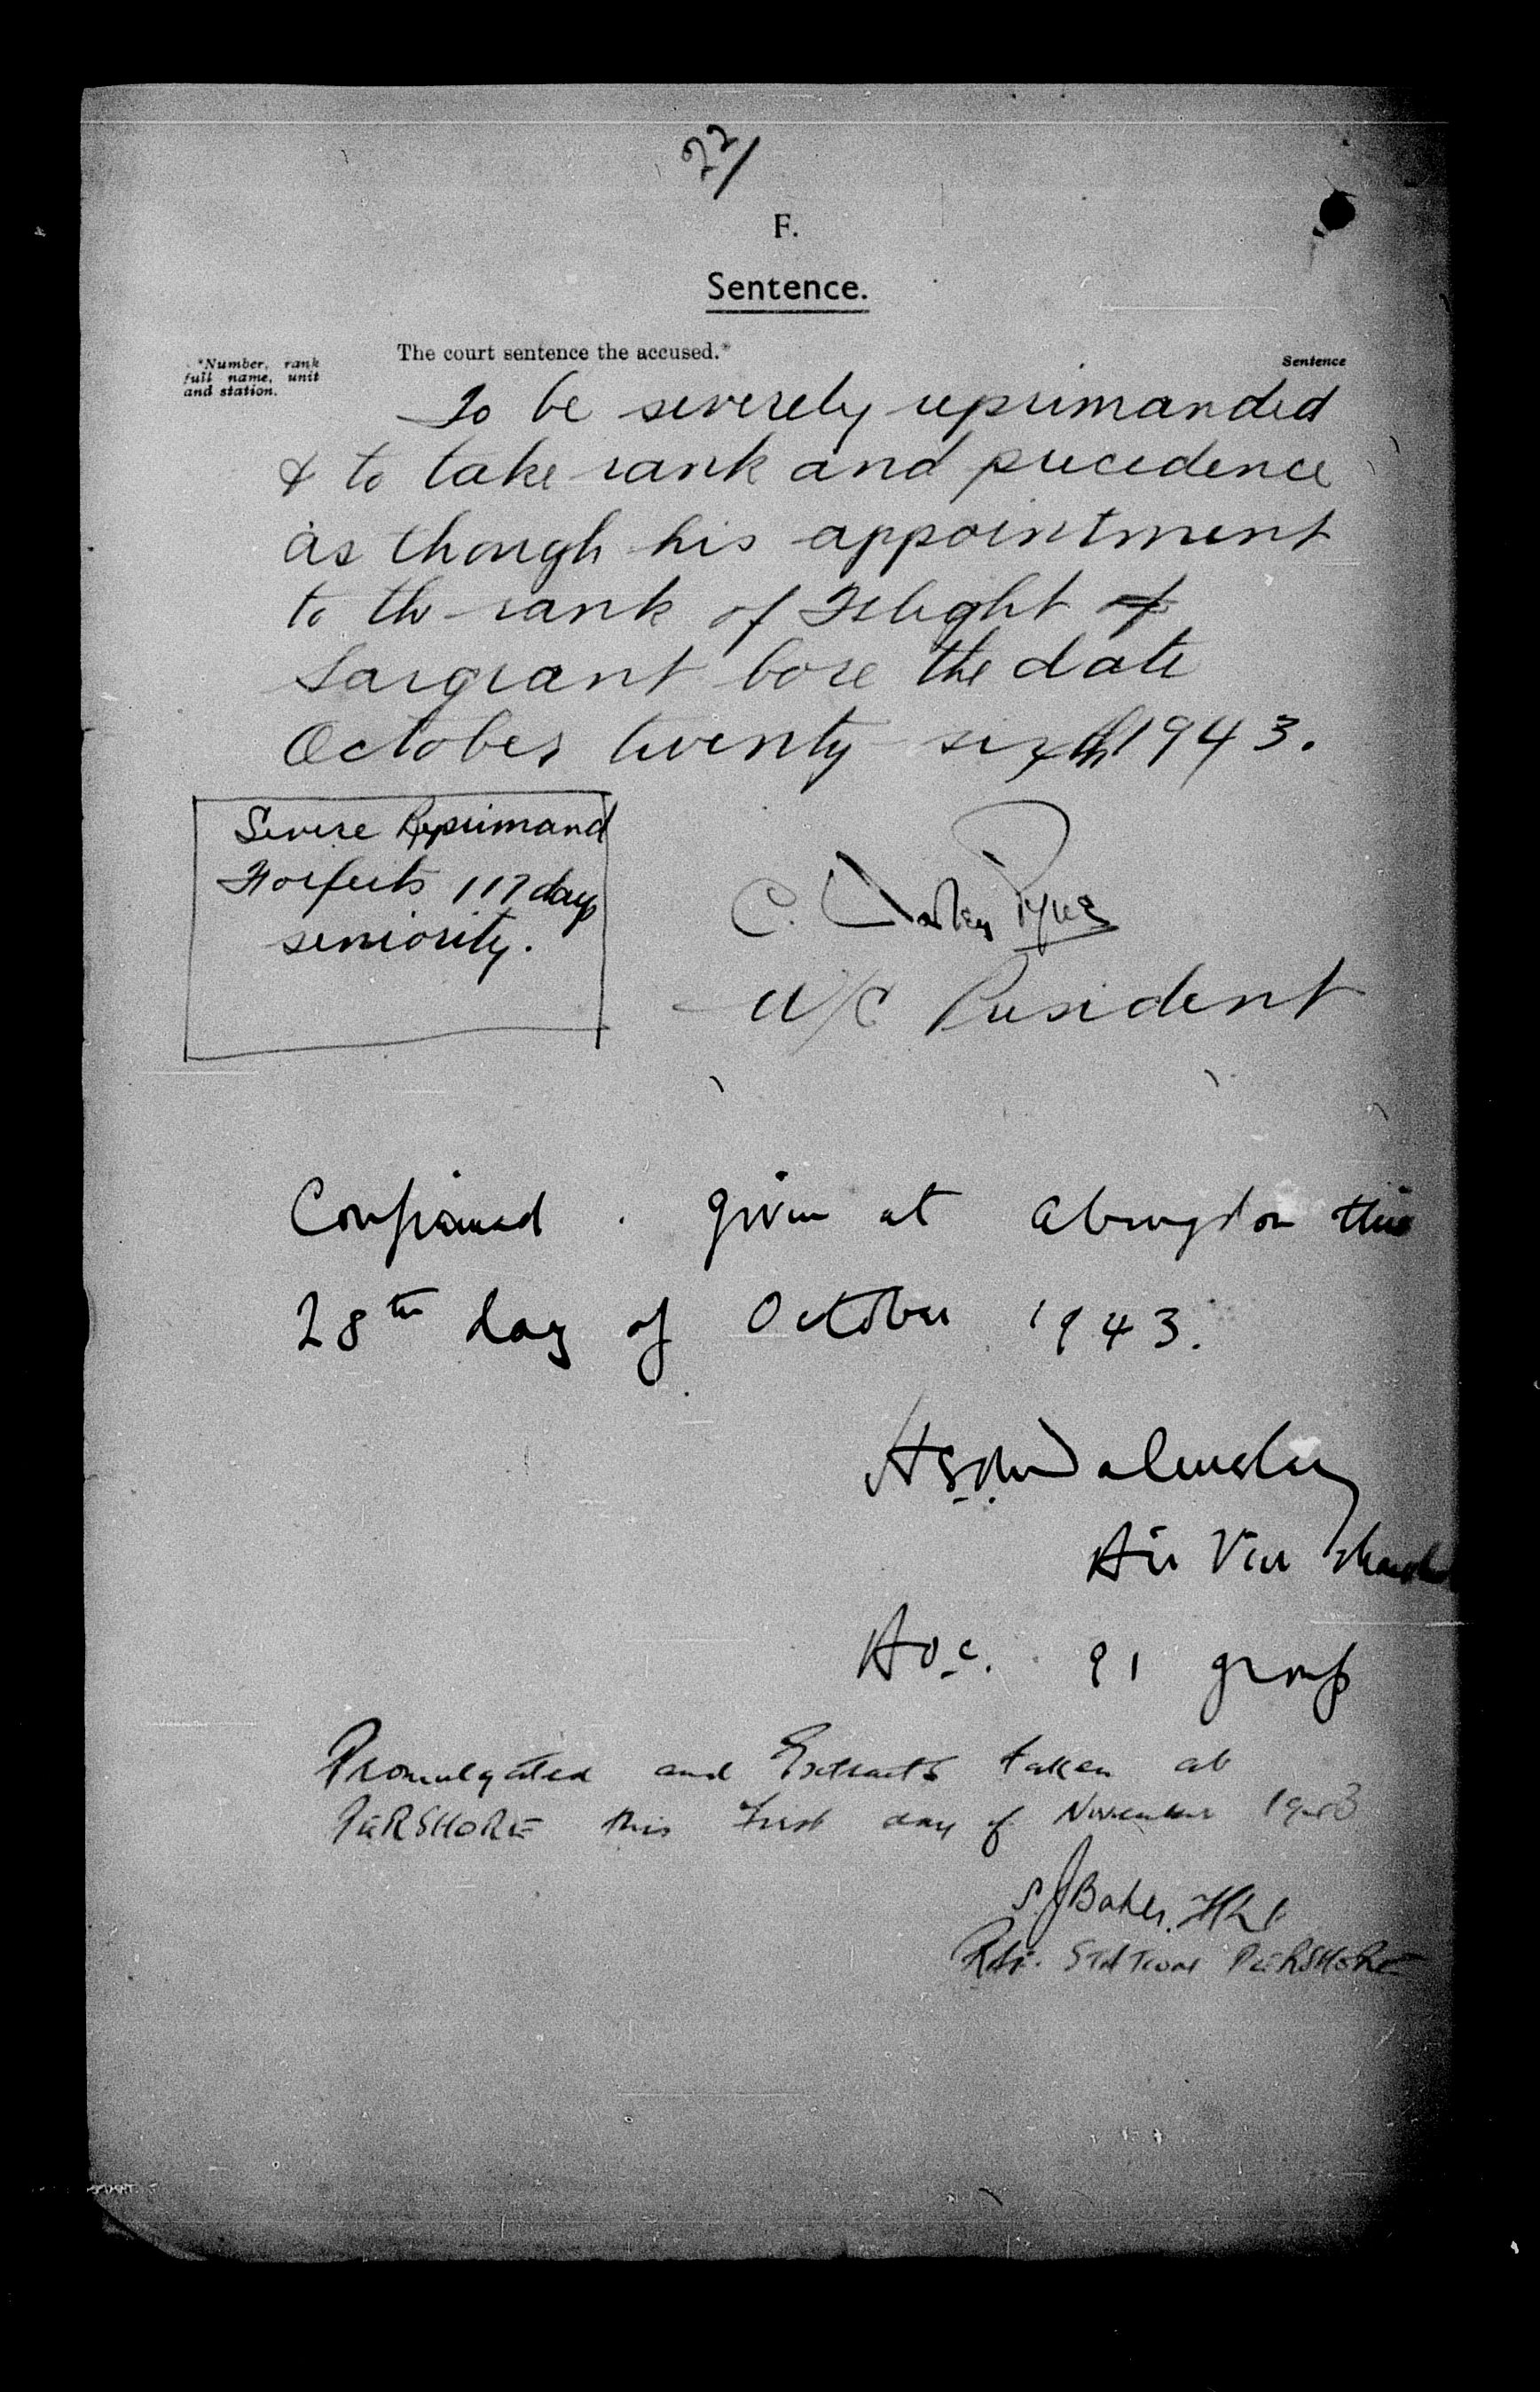 22/
F.
Sentence.
The court sentence the accused.*
*Number, rank
full name, unit
and station.
Sentence
To be severely reprimanded
& to take rank and precedence
as though his appointment
to the rank of Flight
Sargeant bore the date
October twenty sixth 1943.
Severe Reprimand
Forfeits 117 days
seniority.
C.
W/C President
Confirmed. Given at Abingdon this
28th day of October 1943.
Air Vice Marshal
AOC. 91 Group
Promulgated and Extracts taken at
PERSHORE this First day of November 1943
S.J. Baker. F/Lt
RAF. STATION PERSHORE